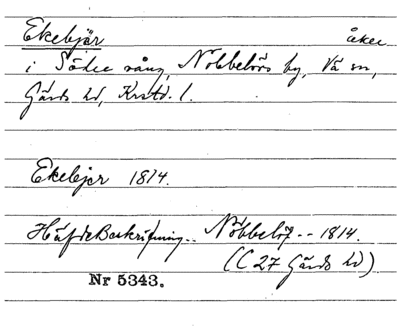 Ekebjär åker
i Södre vång, Nöbbelövs by, Vä sn,
Gärds hd, Krstd. l.
Ekebjer 1814.
HäfdeBeskrifning.. Nöbbelöf -- 1814.
(C 27 Gärds hd)
Nr 5343.